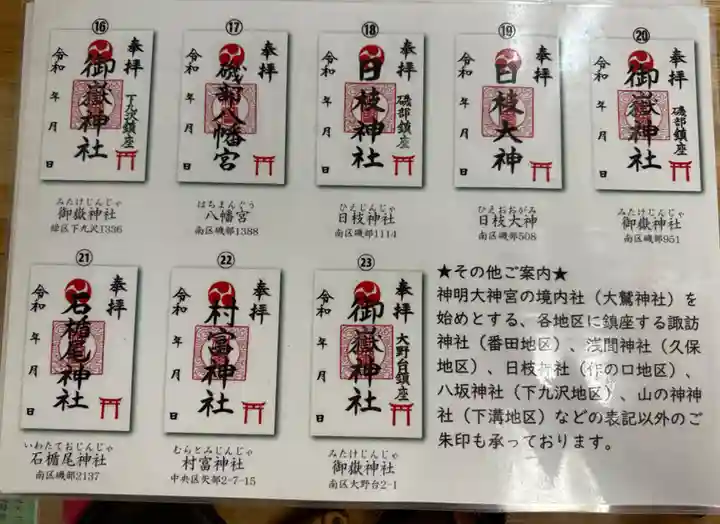 ⑯
奉拝
下九沢鎮座
御嶽神社
令和 年 月 日
みたけじんじゃ
御嶽神社
緑区下九沢1336
⑰
奉拝
磯部八幡宮
令和 年 月 日
はちまんぐう
八幡宮
南区磯部1388
⑱
奉拝
磯部鎮座
日枝神社
令和 年 月 日
ひえじんじゃ
日枝神社
南区磯部1114
⑲
奉拝
日枝大神
令和 年 月 日
ひえおおがみ
日枝大神
南区磯部508
⑳
奉拝
磯部鎮座
御嶽神社
令和 年 月 日
みたけじんじゃ
御嶽神社
南区磯部951
㉑
奉拝
石楯尾神社
令和 年 月 日
いわたておじんじゃ
石楯尾神社
南区磯部2137
㉒
奉拝
村富神社
令和 年 月 日
むらとみじんじゃ
村富神社
中央区矢部2-7-15
㉓
奉拝
大野台鎮座
御嶽神社
令和 年 月 日
みたけじんじゃ
御嶽神社
南区大野台2-1
★その他ご案内★
神明大神宮の境内社（大鷲神社）を
始めとする、各地区に鎮座する諏訪
神社（番田地区）、浅間神社（久保
地区）、日枝神社（作の口地区）、
八坂神社（下九沢地区）、山の神神
社（下溝地区）などの表記以外のご
朱印も承っております。